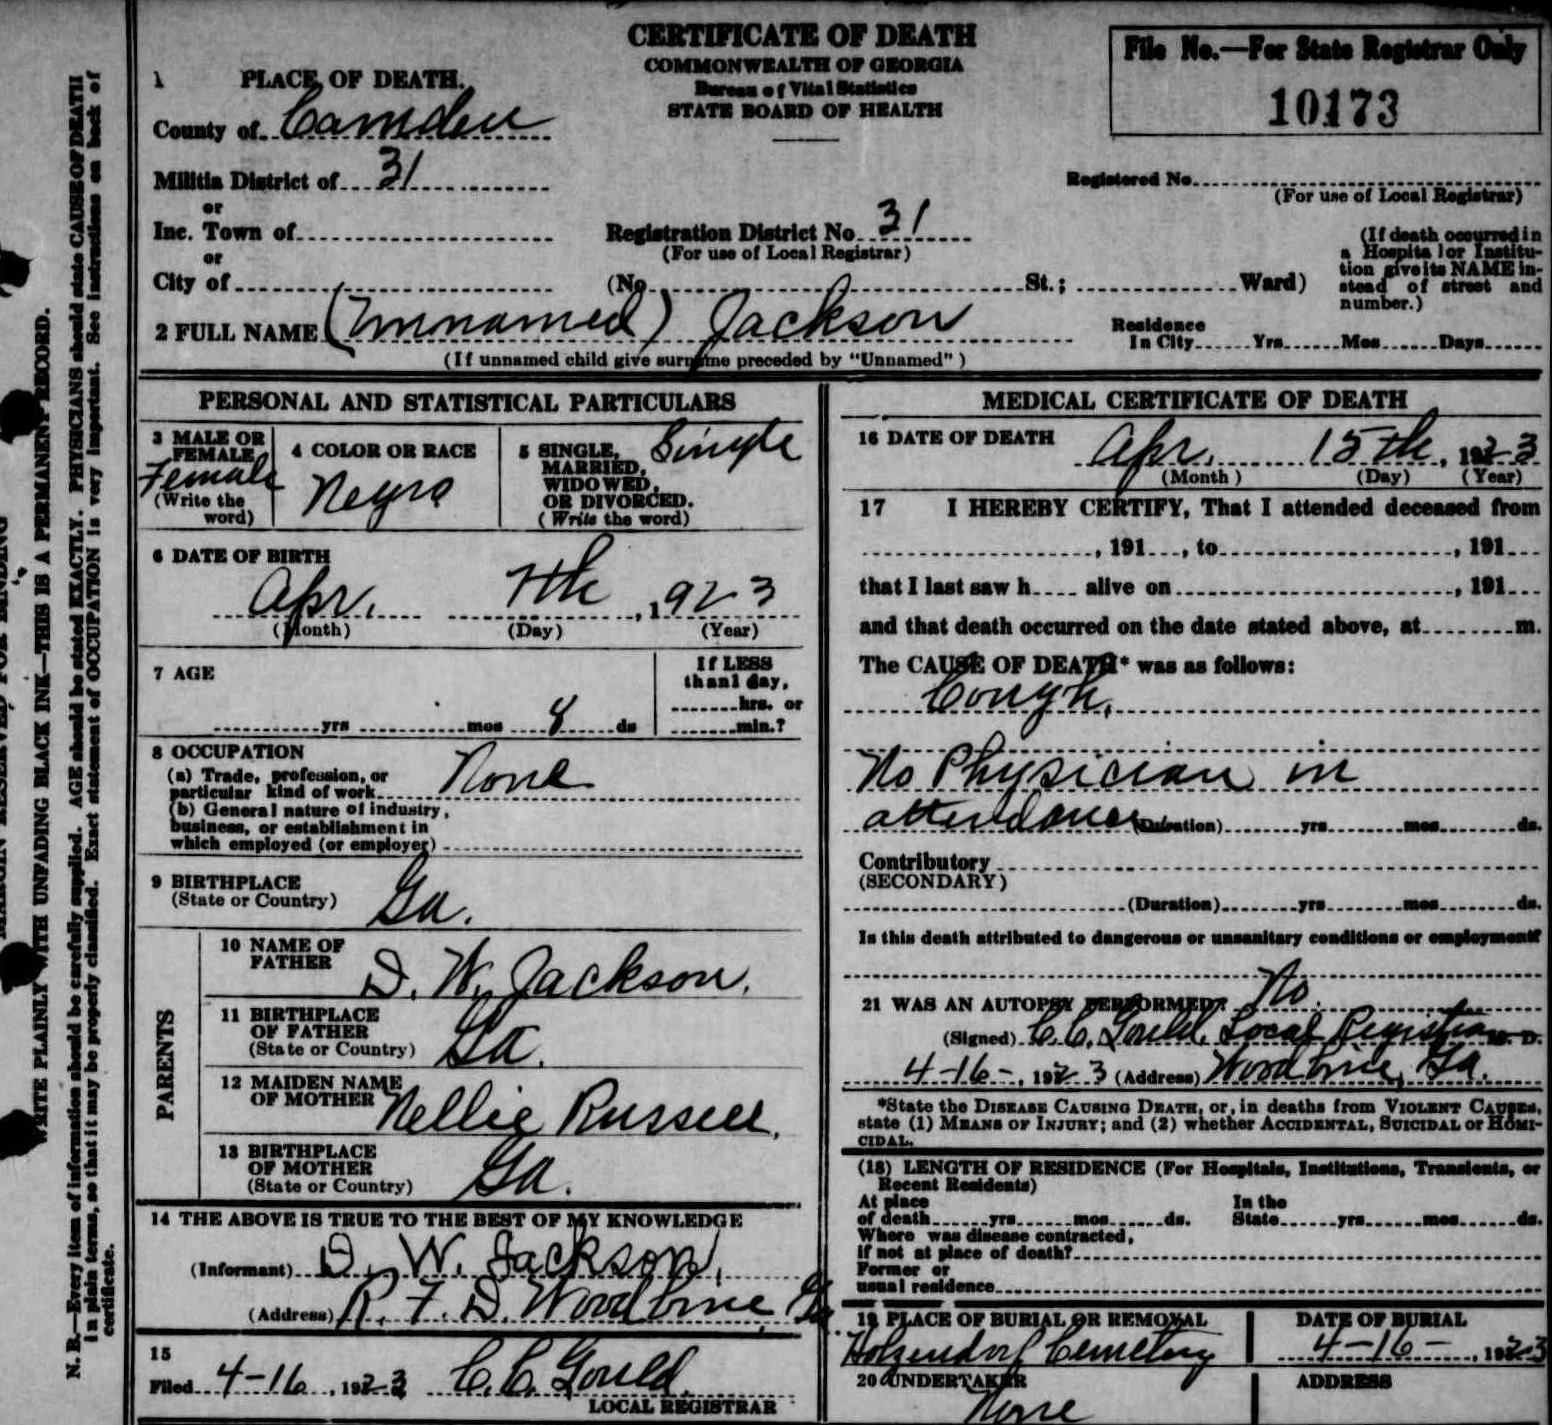 CERTIFICATE OF DEATH
COMMONWEALTH OF GEORGIA
Bureau of Vital Statistics
STATE BOARD OF HEALTH
File No.—For State Registrar Only
10173
1 PLACE OF DEATH.
County of Camden
Militia District of 31
or
Inc. Town of
or
City of
Registration District No. 31
(For use of Local Registrar)
(No. St.; Ward)
Registered No.
(For use of Local Registrar)
(If death occurred in
a Hospital or Institu-
tion give its NAME in-
stead of street and
number.)
2 FULL NAME (Unnamed) Jackson
(If unnamed child give surname preceded by "Unnamed")
Residence
In City Yrs Mos Days
PERSONAL AND STATISTICAL PARTICULARS
3 MALE OR
FEMALE
Female
(Write the
word)
4 COLOR OR RACE
Negro
5 SINGLE, Single
MARRIED,
WIDOWED,
OR DIVORCED.
(Write the word)
6 DATE OF BIRTH
Apr. 7th, 1923
(Month) (Day) (Year)
7 AGE
yrs mos 8 ds
If LESS
than 1 day,
hrs. or
min.?
8 OCCUPATION
(a) Trade, profession, or
particular kind of work None
(b) General nature of industry,
business, or establishment in
which employed (or employer)
9 BIRTHPLACE
(State or Country) Ga.
PARENTS
10 NAME OF
FATHER D. W. Jackson.
11 BIRTHPLACE
OF FATHER
(State or Country) Ga.
12 MAIDEN NAME
OF MOTHER Nellie Russell.
13 BIRTHPLACE
OF MOTHER
(State or Country) Ga.
14 THE ABOVE IS TRUE TO THE BEST OF MY KNOWLEDGE
(Informant) D. W. Jackson,
(Address) R. F. D. Woodbine, Ga.
15
Filed 4-16, 1923 C. C. Gould.
LOCAL REGISTRAR
MEDICAL CERTIFICATE OF DEATH
16 DATE OF DEATH
Apr. 15th, 1923
(Month) (Day) (Year)
17 I HEREBY CERTIFY, That I attended deceased from
, 191 , to , 191
that I last saw h alive on , 191
and that death occurred on the date stated above, at m.
The CAUSE OF DEATH* was as follows:
Cough.
No Physician in
attendance (Duration) yrs mos ds.
Contributory
(SECONDARY)
(Duration) yrs mos ds.
Is this death attributed to dangerous or unsanitary conditions or employment?
21 WAS AN AUTOPSY PERFORMED? No.
(Signed) C. C. Gould, Local Registrar M. D.
4-16-, 1923 (Address) Woodbine, Ga.
*State the DISEASE CAUSING DEATH, or, in deaths from VIOLENT CAUSES,
state (1) MEANS OF INJURY; and (2) whether ACCIDENTAL, SUICIDAL or HOMI-
CIDAL.
(18) LENGTH OF RESIDENCE (For Hospitals, Institutions, Transients, or
Recent Residents)
At place In the
of death yrs mos ds. State yrs mos ds.
Where was disease contracted,
if not at place of death?
Former or
usual residence
19 PLACE OF BURIAL OR REMOVAL
Holzendorf Cemetery
DATE OF BURIAL
4-16-, 1923
20 UNDERTAKER
None
ADDRESS
MARGIN RESERVED FOR BINDING
WRITE PLAINLY WITH UNFADING BLACK INK—THIS IS A PERMANENT RECORD.
N. B.—Every item of information should be carefully supplied. AGE should be stated EXACTLY. PHYSICIANS should state CAUSE OF DEATH
in plain terms, so that it may be properly classified. Exact statement of OCCUPATION is very important. See instructions on back of
certificate.